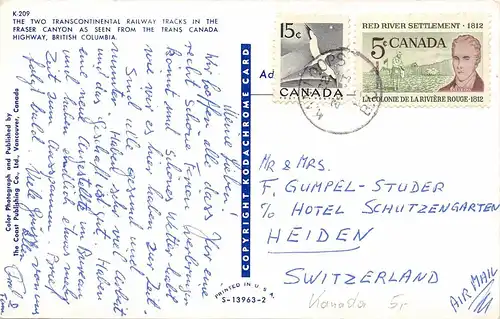 K 209
THE TWO TRANSCONTINENTAL RAILWAY TRACKS IN THE
FRASER CANYON AS SEEN FROM THE TRANS CANADA
HIGHWAY, BRITISH COLUMBIA.
Color Photograph and Published by
The Coast Publishing Co., Ltd., Vancouver, Canada
Meine Lieben!
Wir hoffen alle, dass Ihr eine
recht schöne Ferien verbringen
könnt und schönes Wetter habt
wie wir es hier haben zur Zeit.
Sind alle gesund und
munter. Haben sehr viel Arbeit
und das Geschäft ist gut. Haben
eine neue Angestellte im Bureau
und haben endlich etwas mehr
Zeit zum Ausspannen.
bald Viele Grüsse von uns
COPYRIGHT KODACHROME CARD
PRINTED IN U.S.A.
S-13963-2
Ad
15c
CANADA
RED RIVER SETTLEMENT · 1812
5c CANADA
LA COLONIE DE LA RIVIÈRE ROUGE · 1812
MR & MRS.
F. GUMPEL-STUDER
c/o HOTEL SCHUTZENGARTEN
HEIDEN
SWITZERLAND
AIR MAIL
Kanada 5r